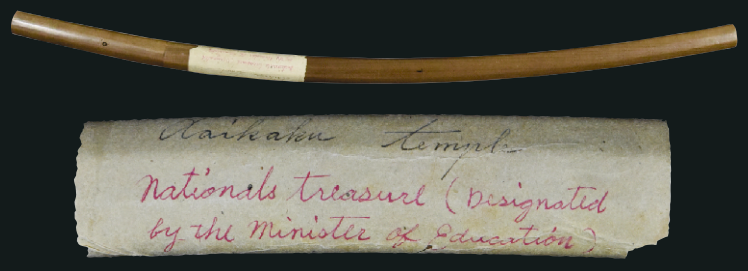 Daikaku temple
Nationals treasure (Designated
by the Minister of Education)